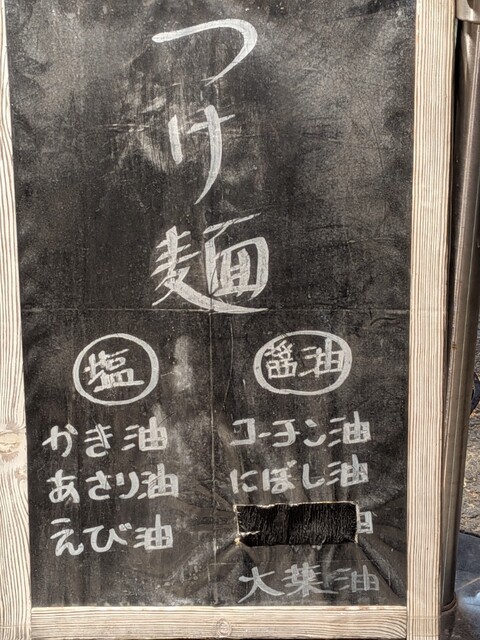 つけ麺
塩
かき油
あさり油
えび油
醤油
コーチン油
にぼし油
大葉油